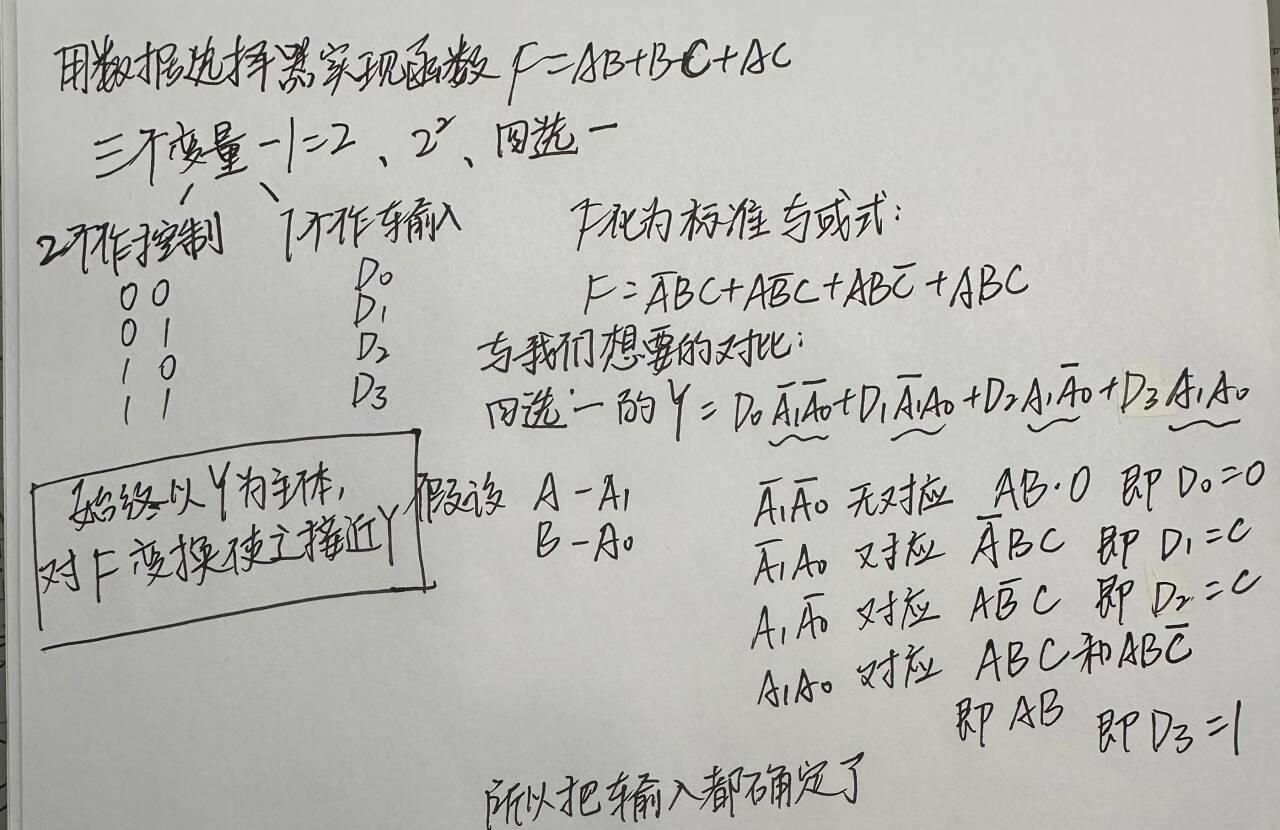 用数据选择器实现函数 F=AB+BC+AC
三个变量-1=2、2²、四选一
2个作控制 1个作车输入
0 0 D₀
0 1 D₁
1 0 D₂
1 1 D₃
F化为标准与或式:
F=A̅BC+AB̅C+ABC̅+ABC
与我们想要的对比:
四选一的Y=D₀A̅₁A̅₀+D₁A̅₁A₀+D₂A₁A̅₀+D₃A₁A₀
始终以Y为主体,
对F变换使之接近Y
假设 A-A₁
B-A₀
A̅₁A̅₀ 无对应 AB·0 即D₀=0
A̅₁A₀ 对应 A̅BC 即D₁=C
A₁A̅₀ 对应 AB̅C 即D₂=C
A₁A₀ 对应 ABC和ABC̅
即AB 即D₃=1
所以把车输入都确定了